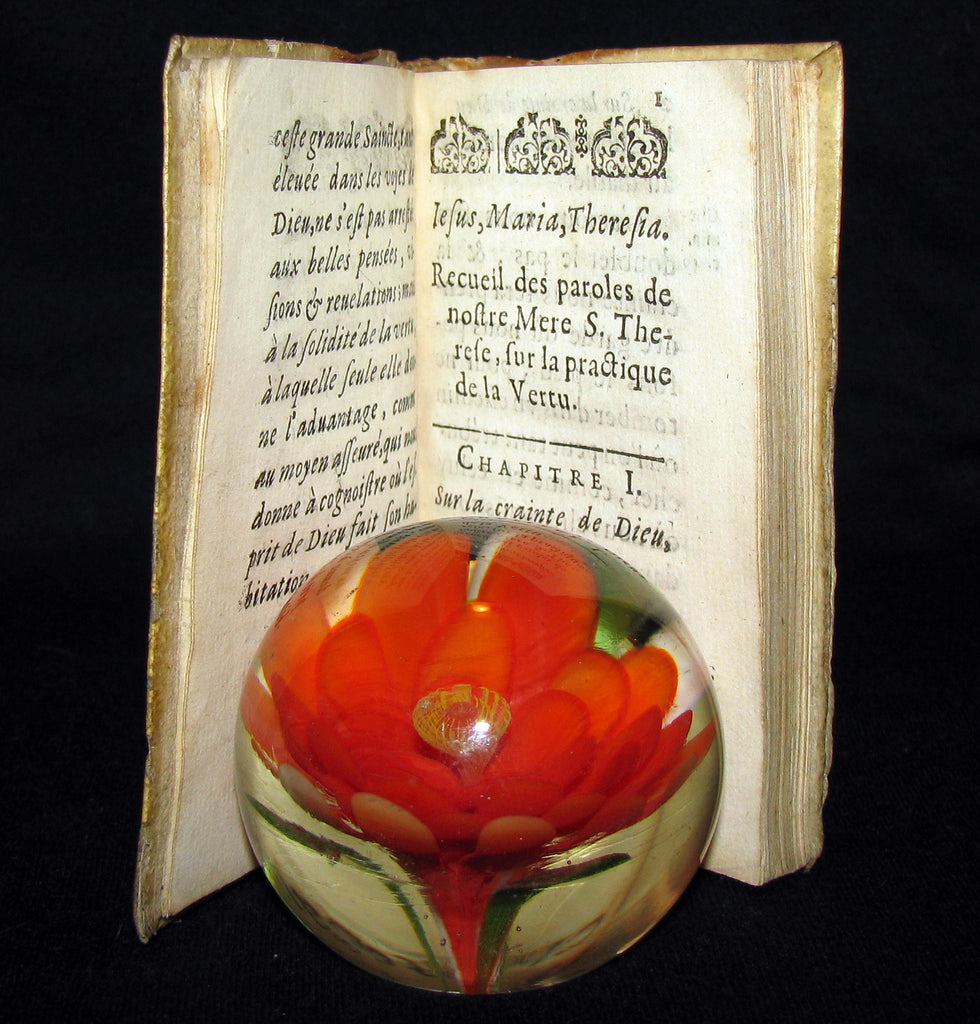 ceste grande Saincte, tant
éleuée dans les voyes de
Dieu, ne s'est pas arrestée
aux belles pensées,
sions & reuelations; mais
à la solidité de la vertu
à laquelle seule elle
ne l'aduantage,
au moyen asseuré, qui
donne à cognoistre où
prit de Dieu fait son ha-
bitation
1
Iesus, Maria, Theresia.
Recueil des paroles de
nostre Mere S. The-
rese, sur la practique
de la Vertu.
CHAPITRE I.
Sur la crainte de Dieu,